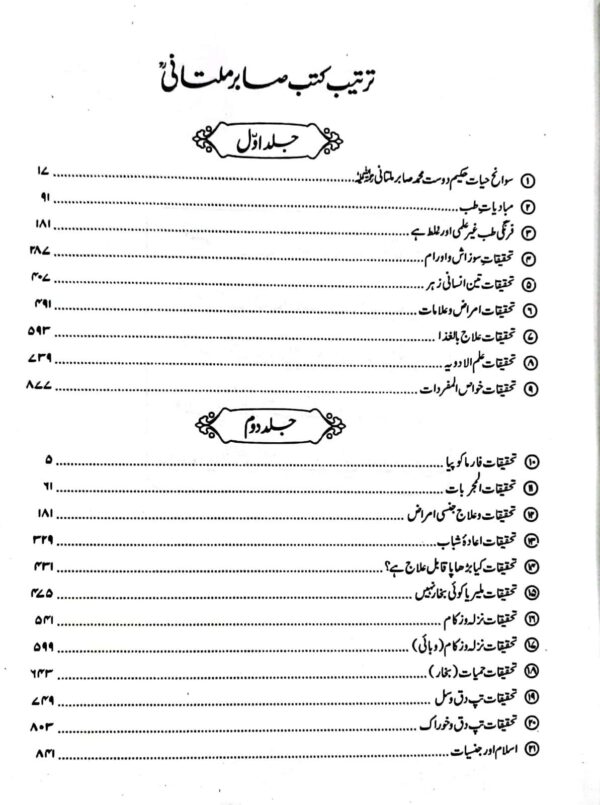 ترتیب کتب صابر ملتانیؒ
جلد اوّل
۱ سوانح حیات حکیم دوست محمد صابر ملتانی رحمۃ اللہ علیہ ۱۷
۲ مبادیاتِ طب ۹۱
۳ فرنگی طب غیر علمی اور غلط ہے ۱۸۱
۴ تحقیقات سوزاش و اورام ۲۸۷
۵ تحقیقات تین انسانی زہر ۴۰۷
۶ تحقیقات امراض و علامات ۴۹۱
۷ تحقیقات علاج بالغذا ۵۹۳
۸ تحقیقات علم الادویہ ۷۳۹
۹ تحقیقات خواص المفردات ۸۷۷
جلد دوم
۱۰ تحقیقات فارماکوپیا ۵
۱۱ تحقیقات المجربات ۶۱
۱۲ تحقیقات و علاج جنسی امراض ۱۸۱
۱۳ تحقیقات اعادۂ شباب ۳۲۹
۱۴ تحقیقات کیا بڑھاپا قابل علاج ہے؟ ۴۳۱
۱۵ تحقیقات ملیریا کوئی بخار نہیں ۴۷۵
۱۶ تحقیقات نزلہ و زکام ۵۴۱
۱۷ تحقیقات نزلہ و زکام (وبائی) ۵۹۹
۱۸ تحقیقات حمیات (بخار) ۶۴۳
۱۹ تحقیقات تپ دق و سل ۷۴۹
۲۰ تحقیقات تپ دق و خوراک ۸۰۳
۲۱ اسلام اور جنسیات ۸۴۱